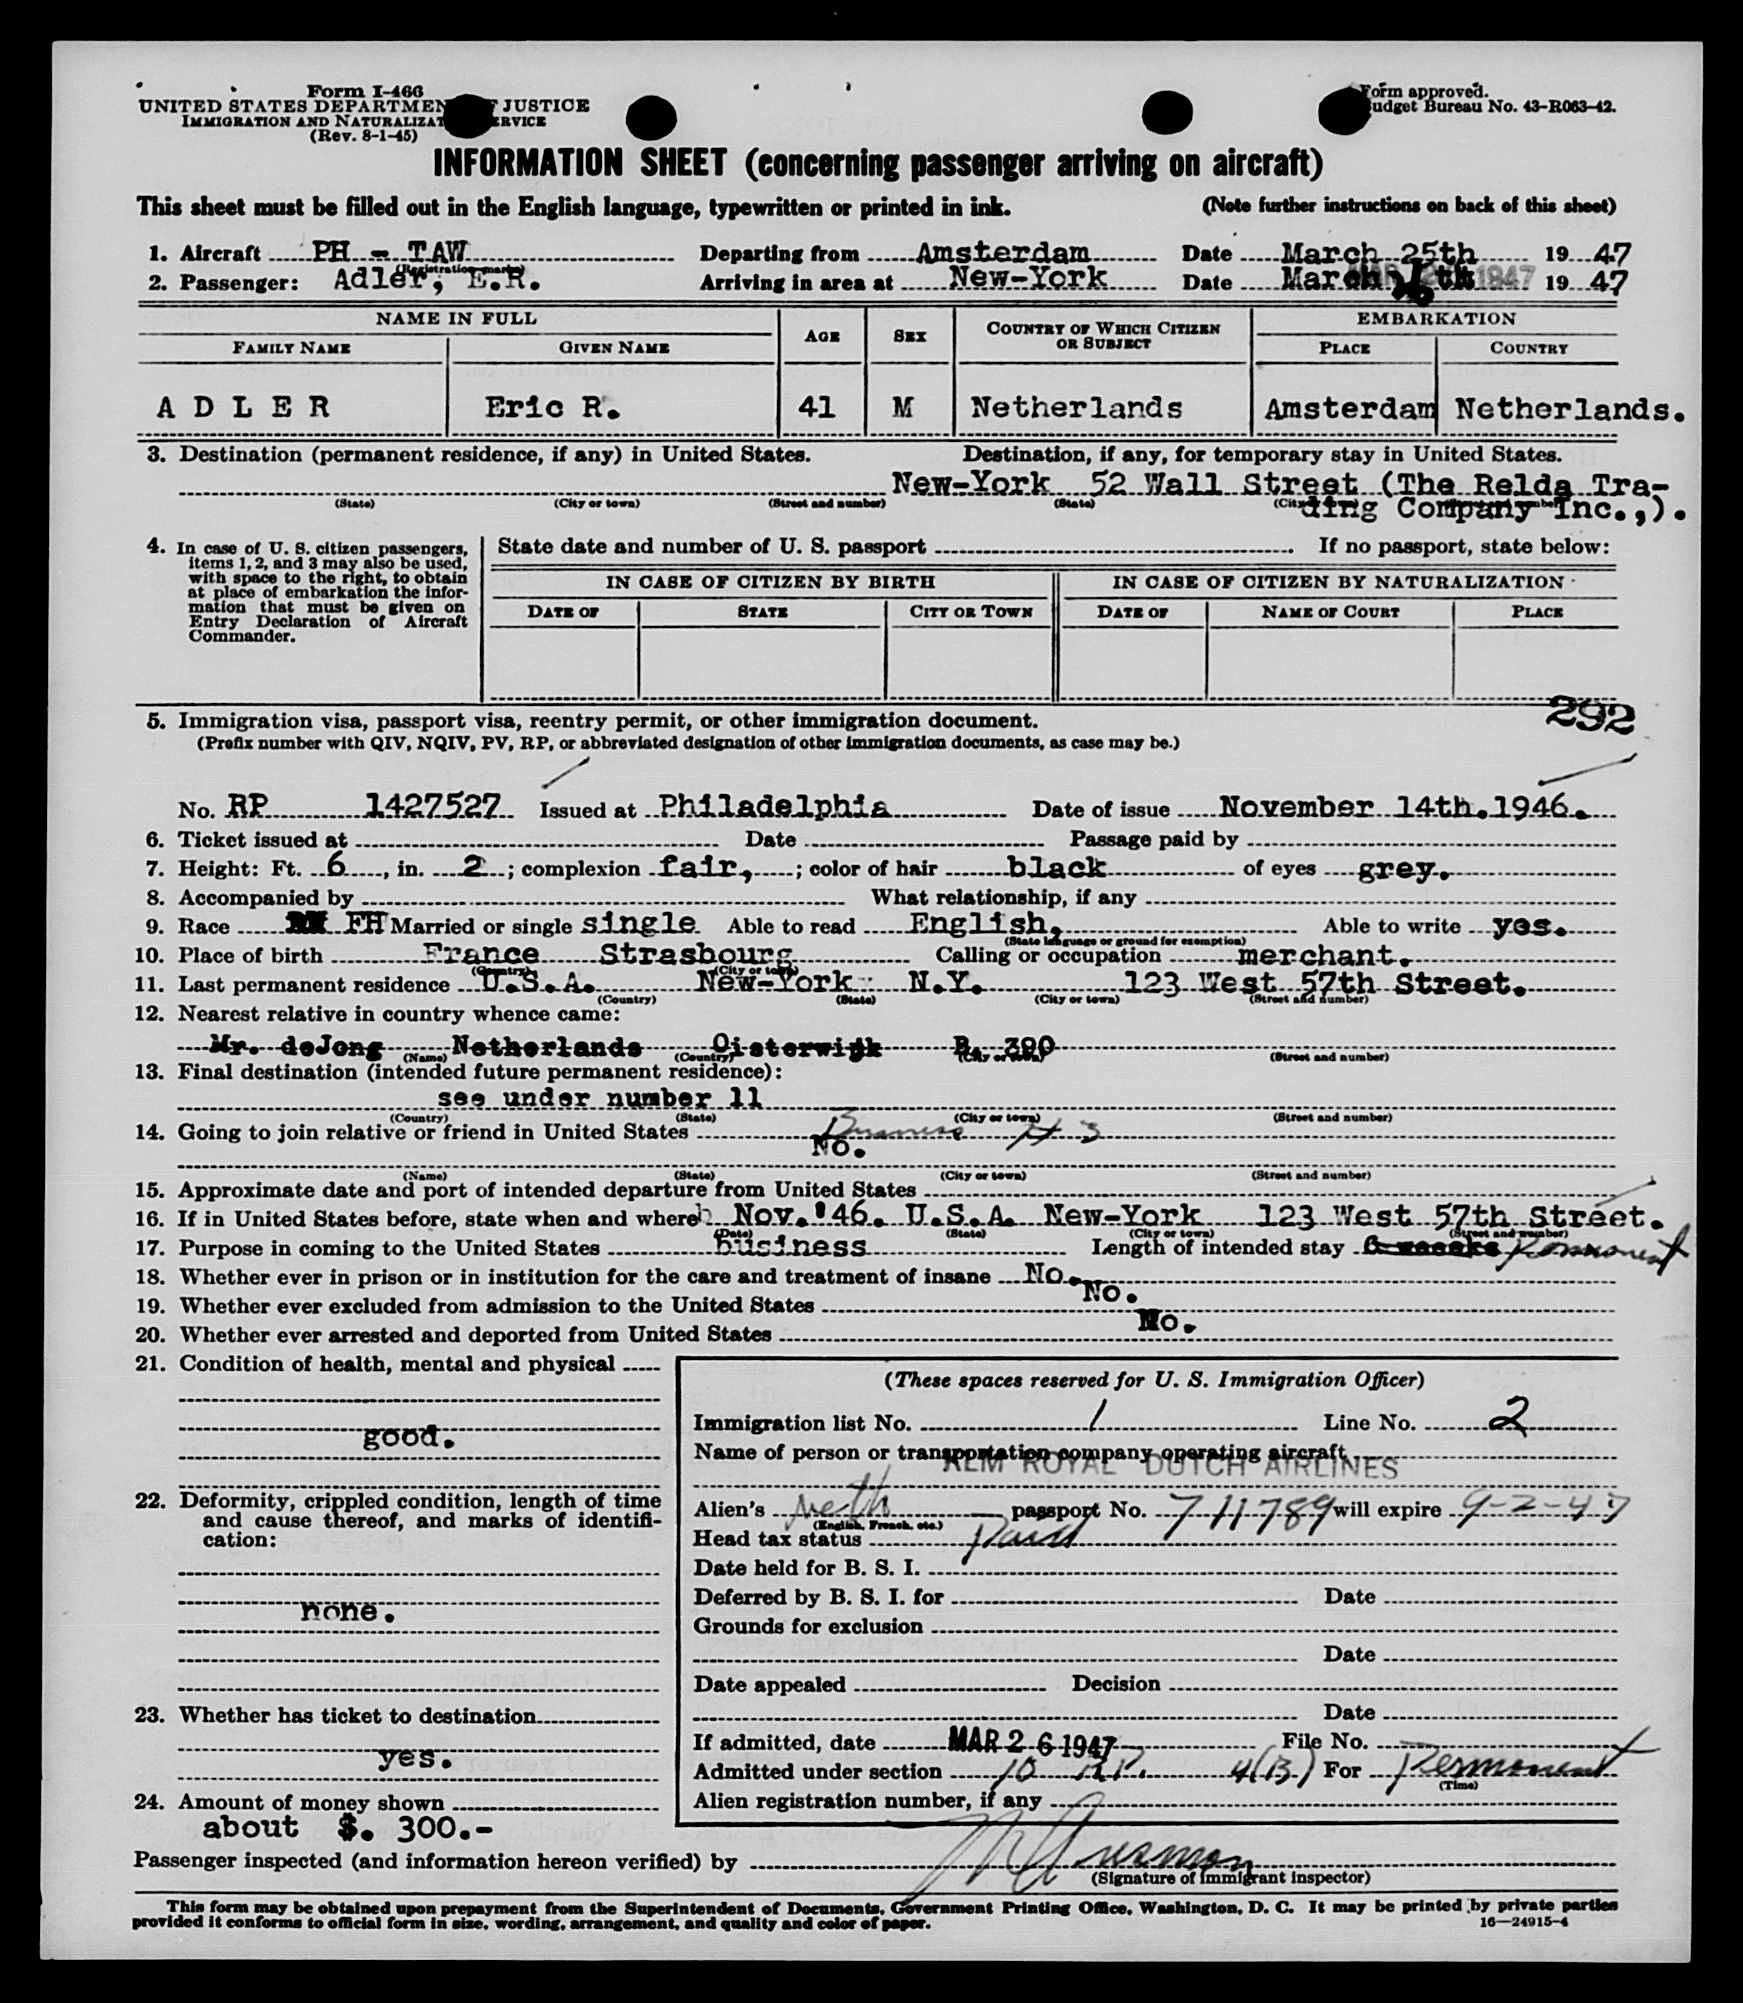 Form I-466
UNITED STATES DEPARTMENT OF JUSTICE
IMMIGRATION AND NATURALIZATION SERVICE
(Rev. 8-1-45)
Form approved.
Budget Bureau No. 43-R063-42.
INFORMATION SHEET (concerning passenger arriving on aircraft)
This sheet must be filled out in the English language, typewritten or printed in ink. (Note further instructions on back of this sheet)
1. Aircraft PH - TAW Departing from Amsterdam Date March 25th 19 47
(Registration marks)
2. Passenger: Adler, E.R. Arriving in area at New-York Date March th 19 47
NAME IN FULL AGE SEX COUNTRY OF WHICH CITIZEN OR SUBJECT EMBARKATION
FAMILY NAME GIVEN NAME PLACE COUNTRY
A D L E R Eric R. 41 M Netherlands Amsterdam Netherlands.
3. Destination (permanent residence, if any) in United States. Destination, if any, for temporary stay in United States.
New-York 52 Wall Street (The Relda Tra-
(State) (City or town) (Street and number) (State) (City or town) (Street and number)
ding Company Inc.,).
4. In case of U. S. citizen passengers, items 1, 2, and 3 may also be used, with space to the right, to obtain at place of embarkation the information that must be given on Entry Declaration of Aircraft Commander.
State date and number of U. S. passport . If no passport, state below:
IN CASE OF CITIZEN BY BIRTH IN CASE OF CITIZEN BY NATURALIZATION
DATE OF STATE CITY OR TOWN DATE OF NAME OF COURT PLACE
292
5. Immigration visa, passport visa, reentry permit, or other immigration document.
(Prefix number with QIV, NQIV, PV, RP, or abbreviated designation of other immigration documents, as case may be.)
No. RP 1427527 Issued at Philadelphia Date of issue November 14th.1946.
6. Ticket issued at Date Passage paid by
7. Height: Ft. 6, in. 2; complexion fair, ; color of hair black of eyes grey.
8. Accompanied by What relationship, if any
9. Race FH Married or single single Able to read English, Able to write yes.
(State language or ground for exemption)
10. Place of birth France Strasbourg Calling or occupation merchant.
(Country) (City or town)
11. Last permanent residence U.S.A. New-York N.Y. 123 West 57th Street.
(Country) (State) (City or town) (Street and number)
12. Nearest relative in country whence came:
Mr. deJong Netherlands Oisterwijk B. 390
(Name) (Country) (City or town) (Street and number)
13. Final destination (intended future permanent residence):
see under number 11
(Country) (State) (City or town) (Street and number)
14. Going to join relative or friend in United States Business
No.
(Name) (State) (City or town) (Street and number)
15. Approximate date and port of intended departure from United States
16. If in United States before, state when and where Nov. '46. U.S.A. New-York 123 West 57th Street.
(Date) (State) (City or town) (Street and number)
17. Purpose in coming to the United States business Length of intended stay 6 weeks Permanent
18. Whether ever in prison or in institution for the care and treatment of insane No.
19. Whether ever excluded from admission to the United States No.
20. Whether ever arrested and deported from United States No.
21. Condition of health, mental and physical
good.
22. Deformity, crippled condition, length of time and cause thereof, and marks of identification:
none.
23. Whether has ticket to destination
yes.
24. Amount of money shown
about $. 300.-
(These spaces reserved for U. S. Immigration Officer)
Immigration list No. 1 Line No. 2
Name of person or transportation company operating aircraft
KLM ROYAL DUTCH AIRLINES
Alien's Neth passport No. 711789 will expire 9-2-47
(English, French, etc.)
Head tax status Paid
Date held for B. S. I.
Deferred by B. S. I. for Date
Grounds for exclusion
Date
Date appealed Decision
Date
If admitted, date MAR 26 1947 File No.
Admitted under section 10 RP. 4(B) For Permanent
(Time)
Alien registration number, if any
Passenger inspected (and information hereon verified) by
(Signature of immigrant inspector)
This form may be obtained upon prepayment from the Superintendent of Documents, Government Printing Office, Washington, D. C. It may be printed by private parties
provided it conforms to official form in size, wording, arrangement, and quality and color of paper.
16—24915-4